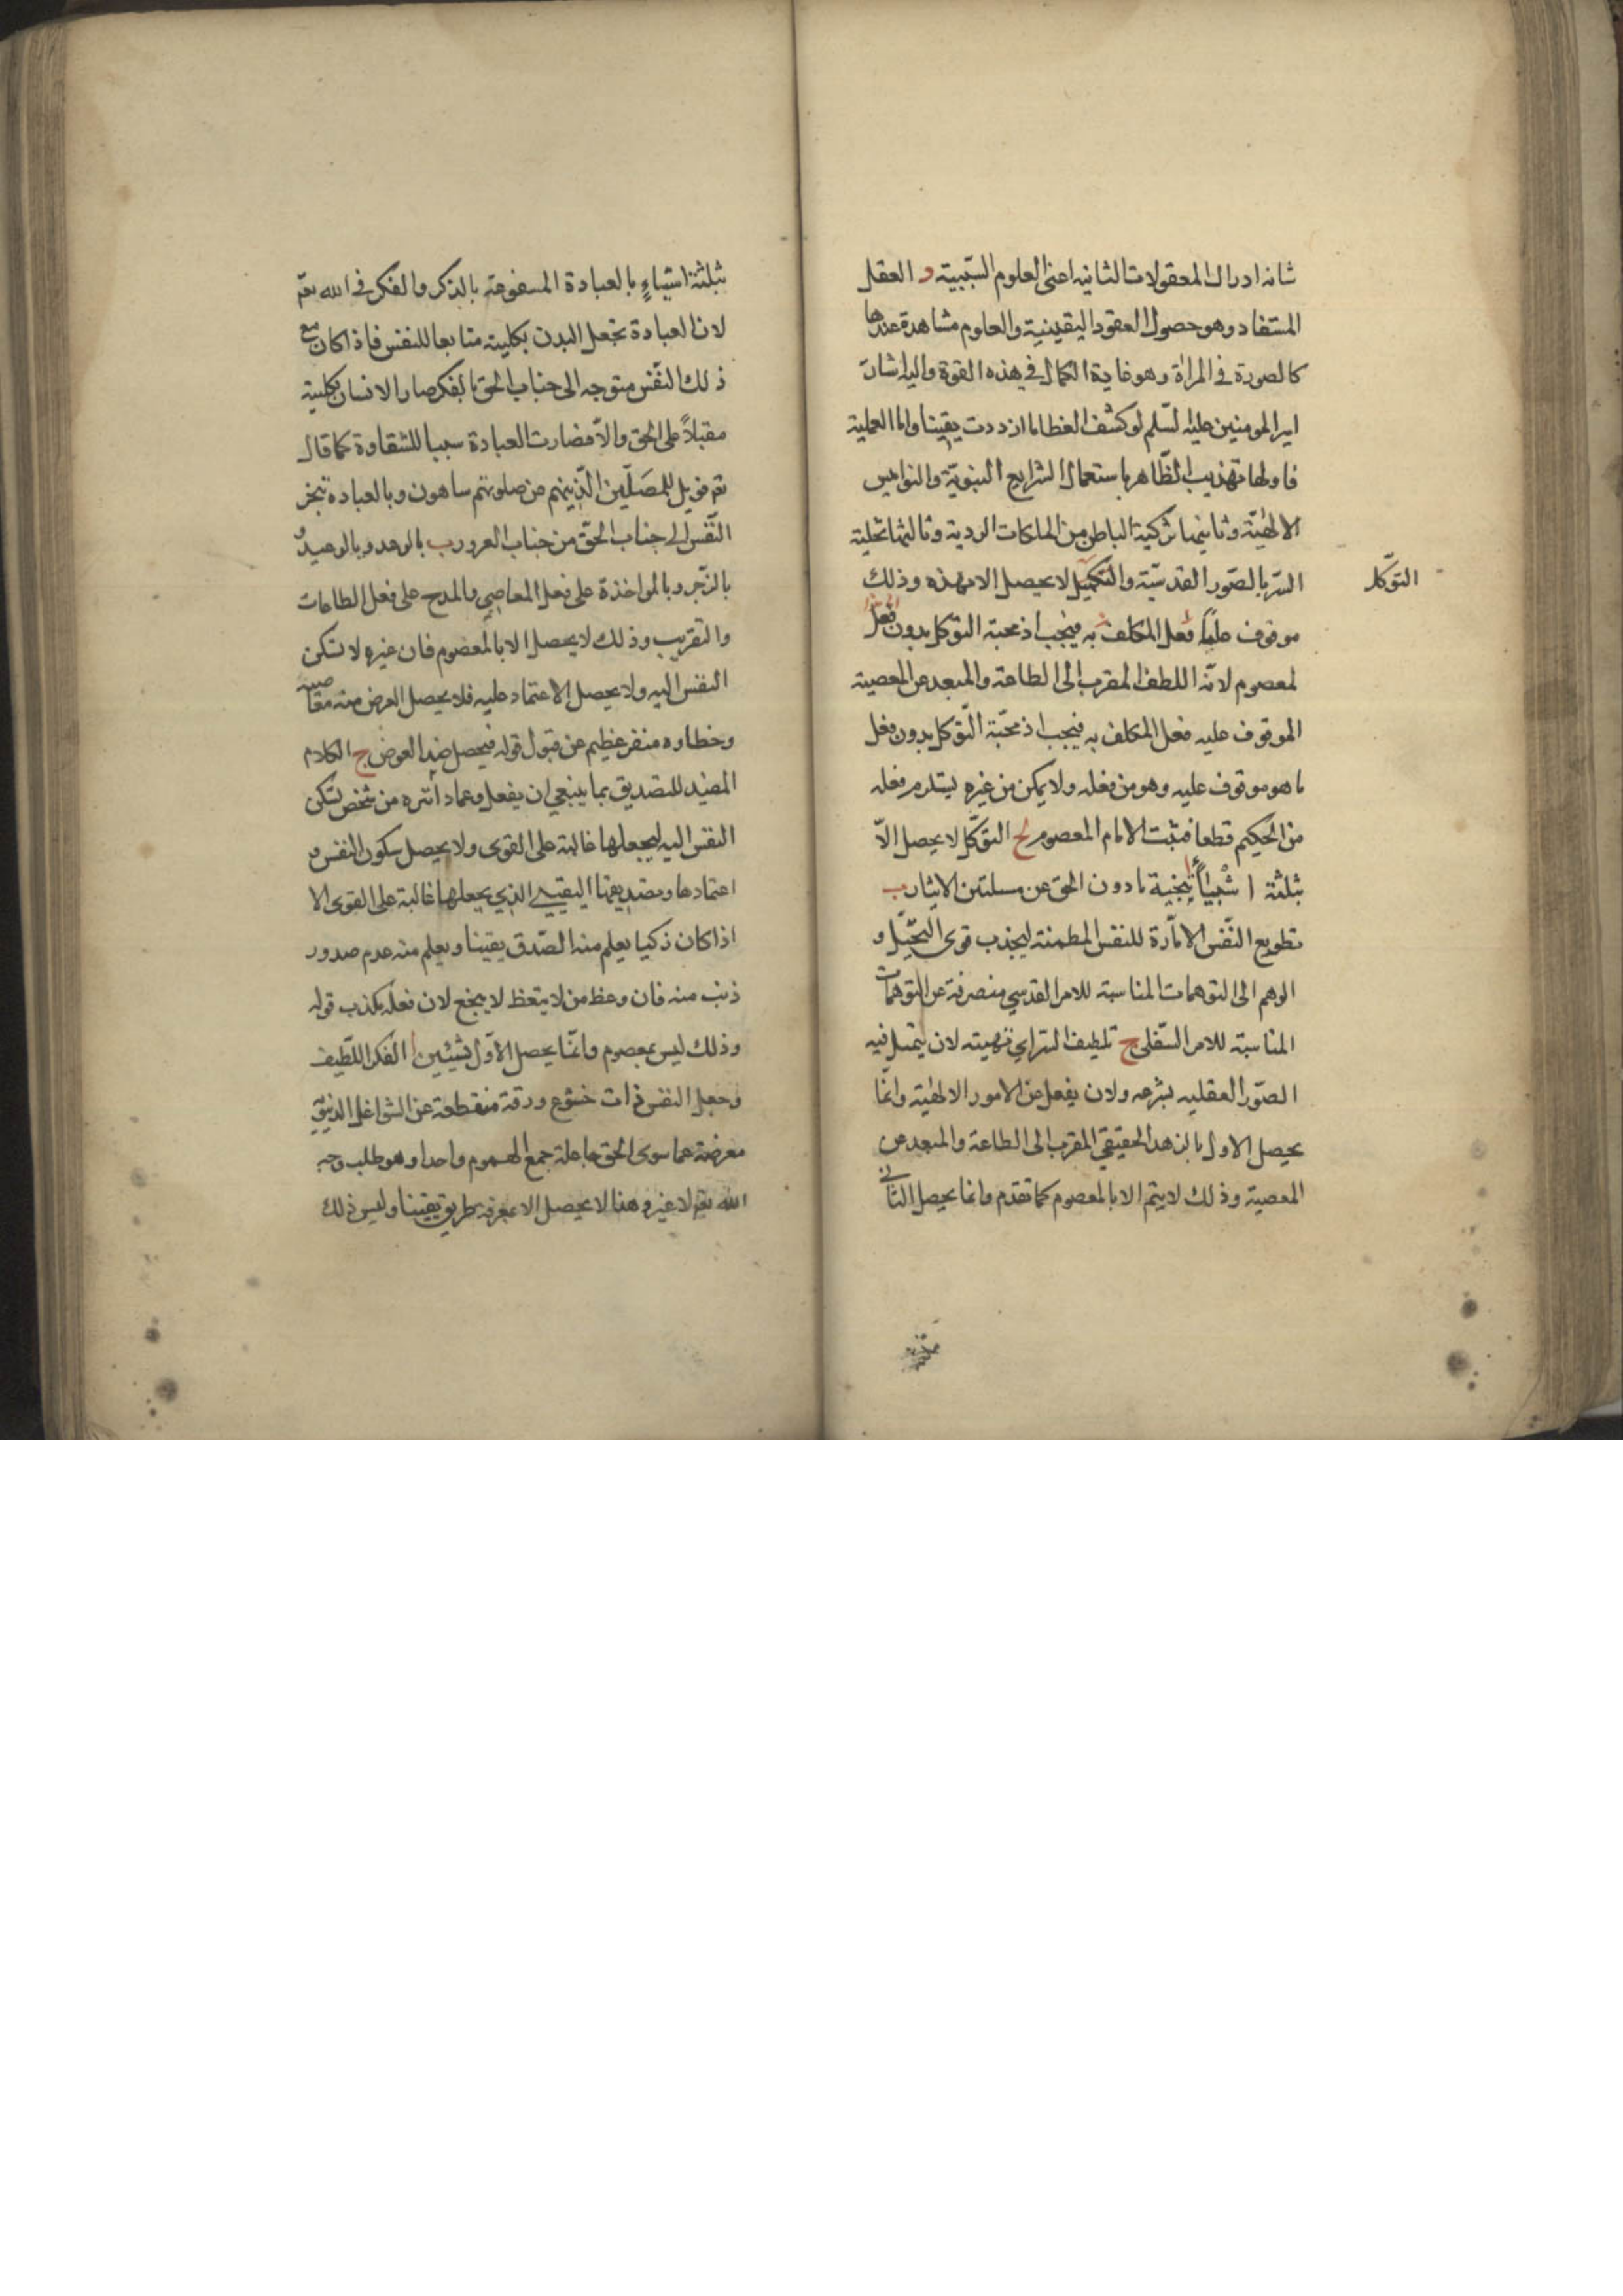 شانه ادراك المعقولات الثانيه اعنى العلوم السببية و العقل
المستفاد وهو حصول العقود اليقينية والعلوم مشاهدة عندها
كالصورة في المراة وهو غاية الكمال في هذه القوة واليه اشارة
امير المومنين عليه لسلم لو كشف الغطا ما ازددت يقينا واما العملية
فاولها تهذيب الظّاهر باستعمال الشرايع النبويّة والنواميس
الالهيّة وثانيها تزكية الباطن من الملكات الردية وثالثها تحلية
السّر بالصّور القدسيّة والتكميل لا يحصل الا بهذه وذلك
التوكّل
موقوف عليها فعل المكلف به فيجب اذ محبة التوكل بدون فعل
لمعصوم لانّه اللطف المقرب الى الطاعة والمبعد عن المعصية
الموقوف عليه فعل المكلف به فيجب اذ محبّة التّوكل بدون فعل
ما هو موقوف عليه وهو من فعله ولا يمكن من غيره يستلزم فعله
من الحكيم قطعا فيثبت الامام المعصوم لح التوكّل لا يحصل الاّ
بثلثة اشياء ا تنحية ما دون الحق عن مسلتين الايثار ب
تطويع النّفس الامّارة للنفس المطمئنة ليجذب قوى التخيّل و
الوهم الى التوهمات المناسبة للامر القدسي منصرفة عن التوهمات
المناسبة للامر السّفلى ج تلطيف السّر اي تهيئته لان يتمثل فيه
الصّور العقليه بسرعه ولان ينفعل عن الامور الالهيّة وانّما
يحصل الاول بالزهد الحقيقي المقرب الى الطاعة والمبعد عن
المعصية وذلك لا يتم الا بالمعصوم كما تقدم وانما يحصل الثاني
بثلثة اشياءٍ بالعبادة المسفوعة بالذكر والفكر في الله تعم
لان العبادة تجعل البدن بكليته متابعا للنفس فاذا كان مع
ذلك النّفس متوجه الى جناب الحق بالفكر صار الانسان بكليته
مقبلاً على الحق والاّ فصارت العبادة سببا للشقاوة كما قال
تعم فويل للمصَلّين الّذينهم عن صلوتهم ساهون وبالعبادة تنجز
النّفس الى جناب الحقّ من جناب الغرور ب بالوعد وبالوعيد و
بالزّجر وبالمواخذة على فعل المعاصي والمدح على فعل الطاعات
والتقريب وذلك لا يحصل الا بالمعصوم فان غيره لا تسكن
النفس اليه ولا يحصل الاعتماد عليه فلا يحصل الغرض منه معاصيه
وخطاوه منفر عظيم عن قبول قوله فيحصل ضد الغرض ج الكلام
المفيد للتصديق بما ينبغي ان يفعل وعماد اثره من شخص تسكن
النفس اليه ليجعلها غالبة على القوى ولا يحصل سكون النفس و
اعتمادها وتصديقها اليقيني الذي يجعلها غالبة على القوى الا
اذا كان زكيا يعلم منه الصّدق يقينا ويعلم منه عدم صدور
ذنب منه فان وعظ من لا يتعظ لا ينجع لان فعله يكذب قوله
وذلك ليس بمعصوم وانّما يحصل الاوّل بشيئين ا الفكر اللّطيف
وجعل النفس ذات خشوع ورقة منقطعة عن الشواغل الدنيّة
معرضة عما سوى الحق جاعلة جمع الهموم واحدا وهو طلب وجه
الله تعم لا غير وهنا لا يحصل الا بمعرفة بطريق يقينا وليس ذلك